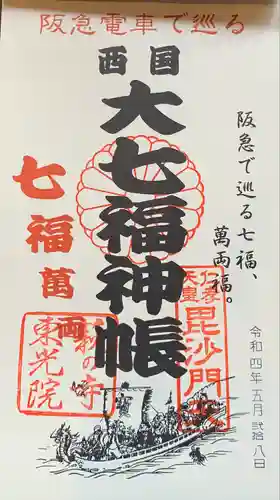 阪急電車で巡る
西国
大七福神帳
阪急で巡る七福、
萬両福。
七福萬両
仁孝
天皇
毘沙門
萩の寺
東光院
令和四年五月弐拾八日